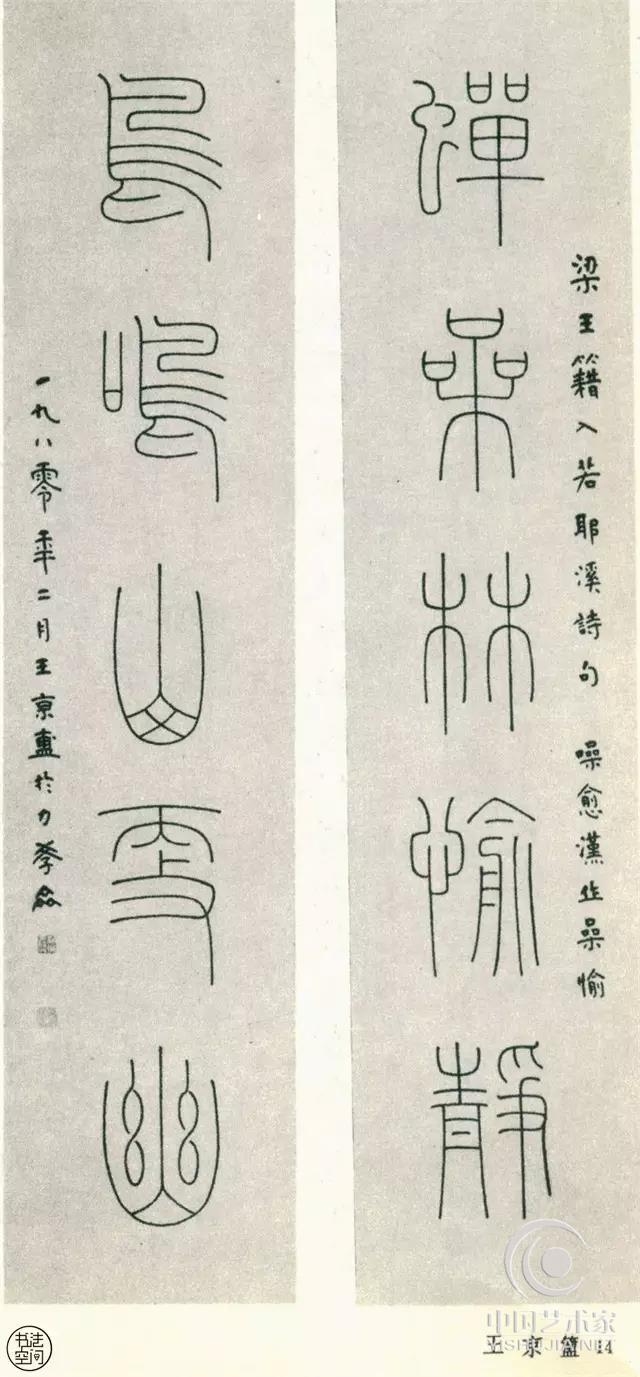 蟬喿林愉靜
梁王籍入若耶溪詩句 噪愈漢作喿愉
鳥鳴山更幽
一九八零年二月王京盙於力
王京簠 14
中国艺术家
书法空间